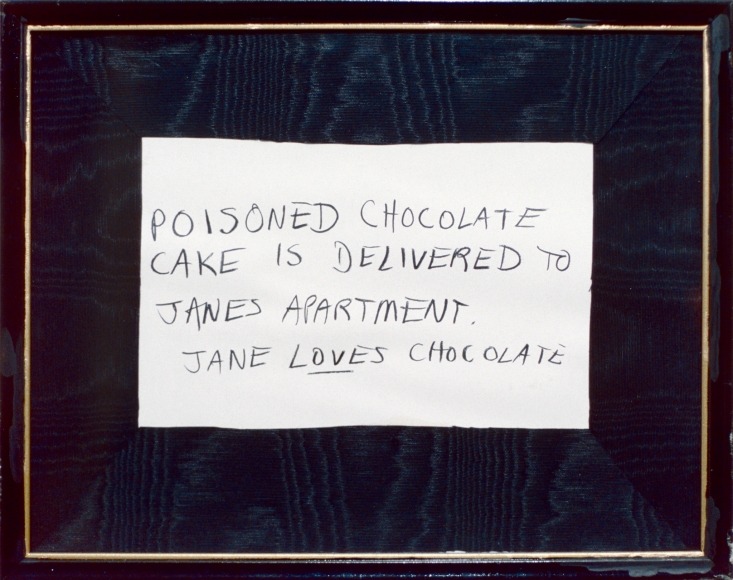 POISONED CHOCOLATE
CAKE IS DELIVERED TO
JANES APARTMENT.
JANE LOVES CHOCOLATE